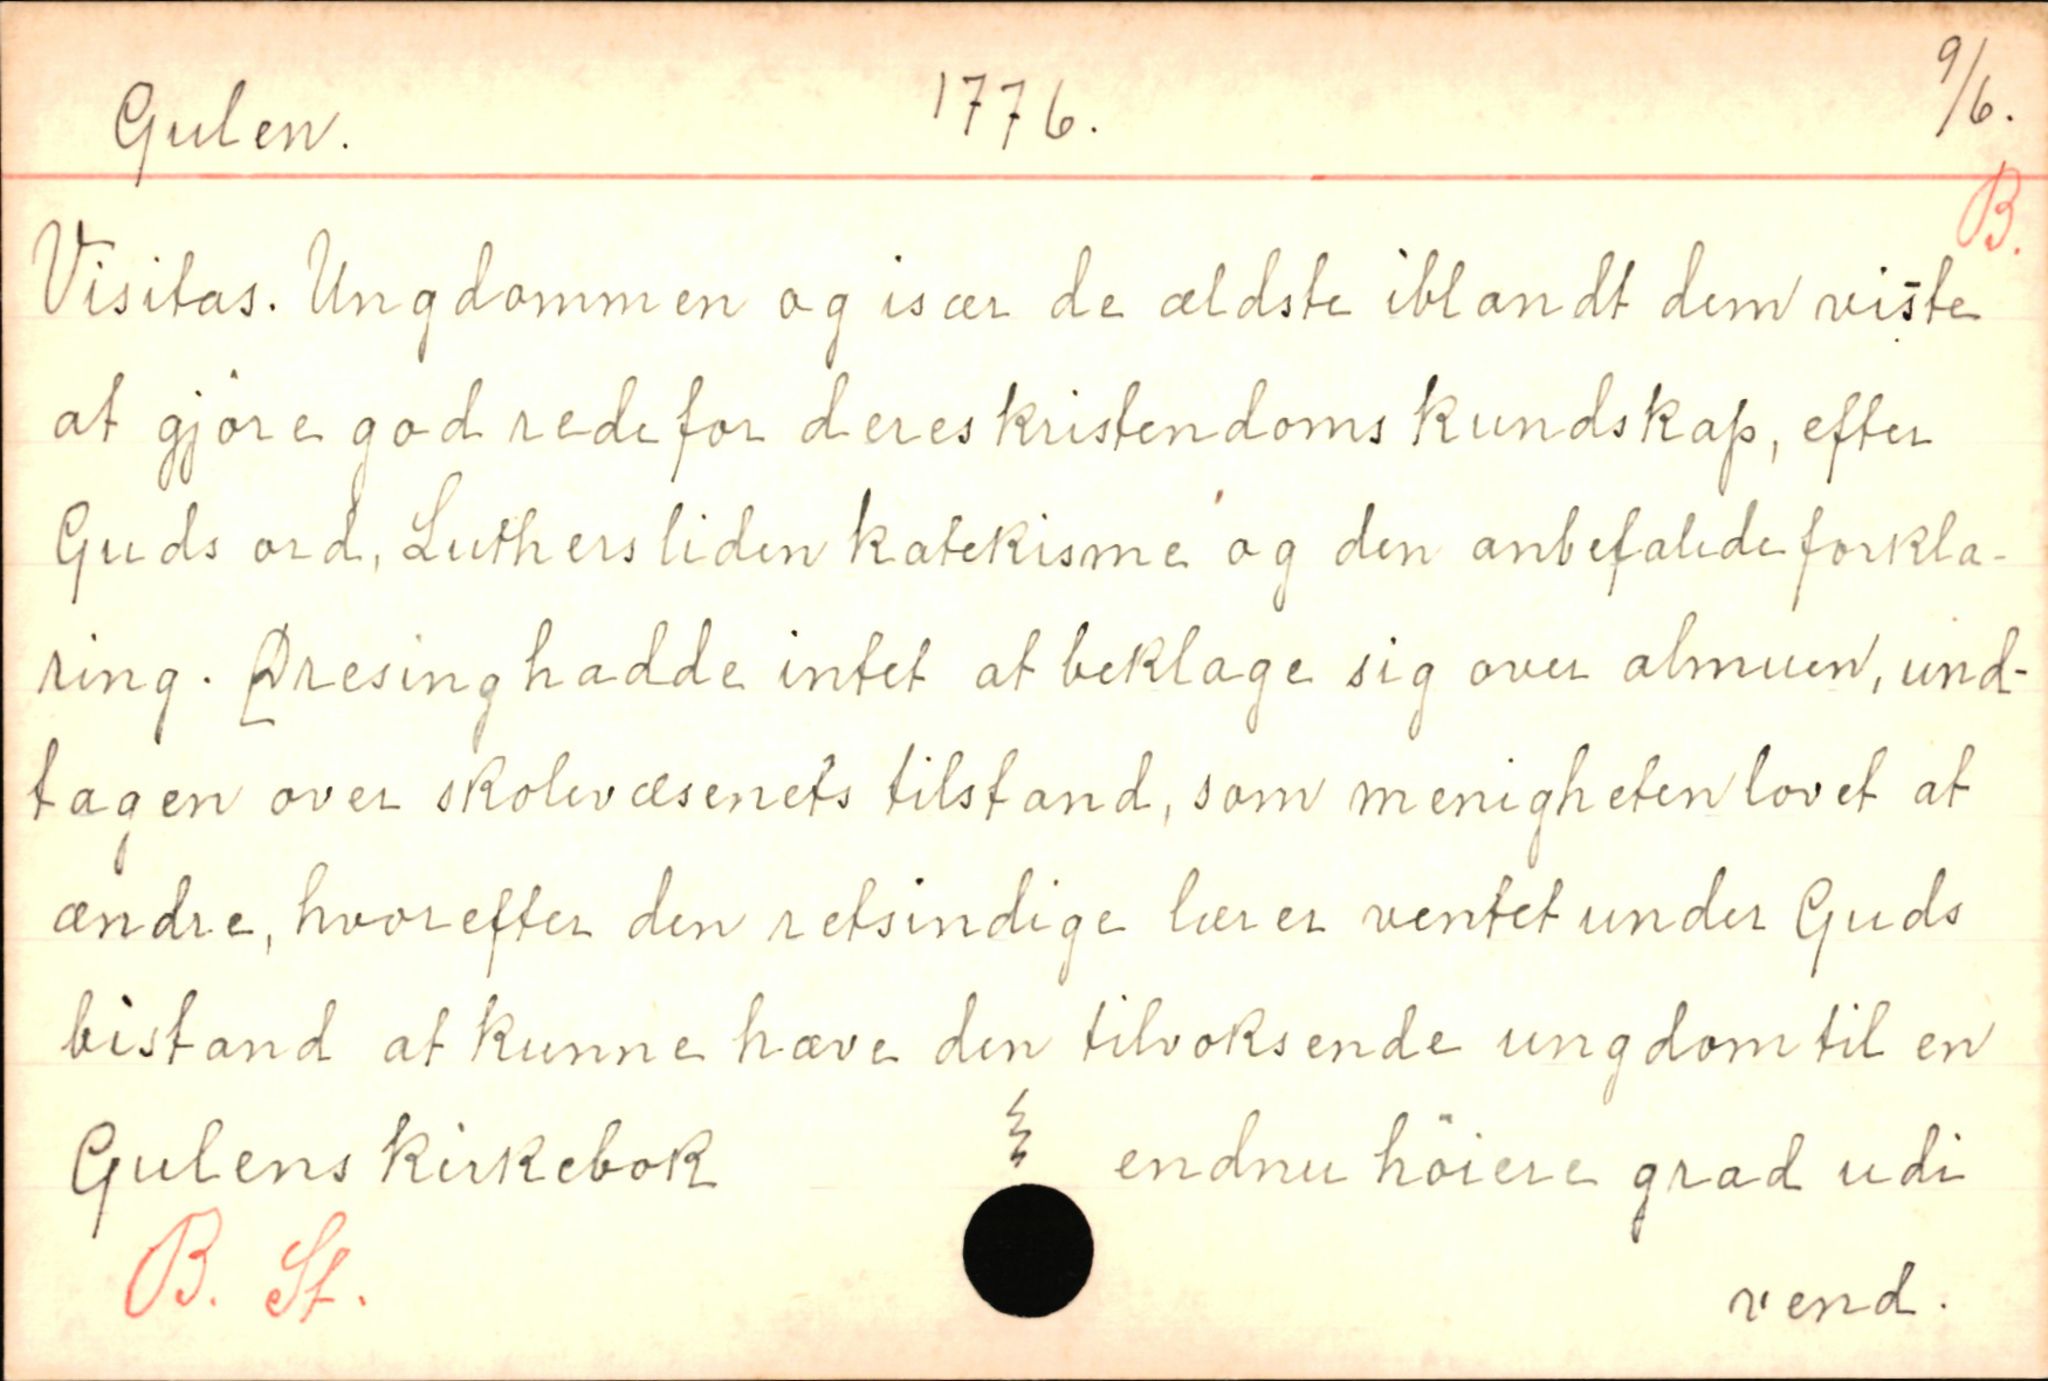 Gulen. 1776. 9/6.
B.
Visitas. Ungdommen og især de ældste iblandt dem viste
at gjöre god rede for deres kristendoms kundskap, efter
Guds ord, Luthers liden katekisme og den anbefalede forkla-
ring. Dresing hadde intet at beklage sig over almuen, und-
tagen over skolevæsenets tilstand, som menigheten lovet at
ændre, hvorefter den retsindige lærer ventet under Guds
bistand at kunne hæve den tilvoksende ungdom til en
Gulens kirkebok endnu höiere grad udi
B. St. vend.